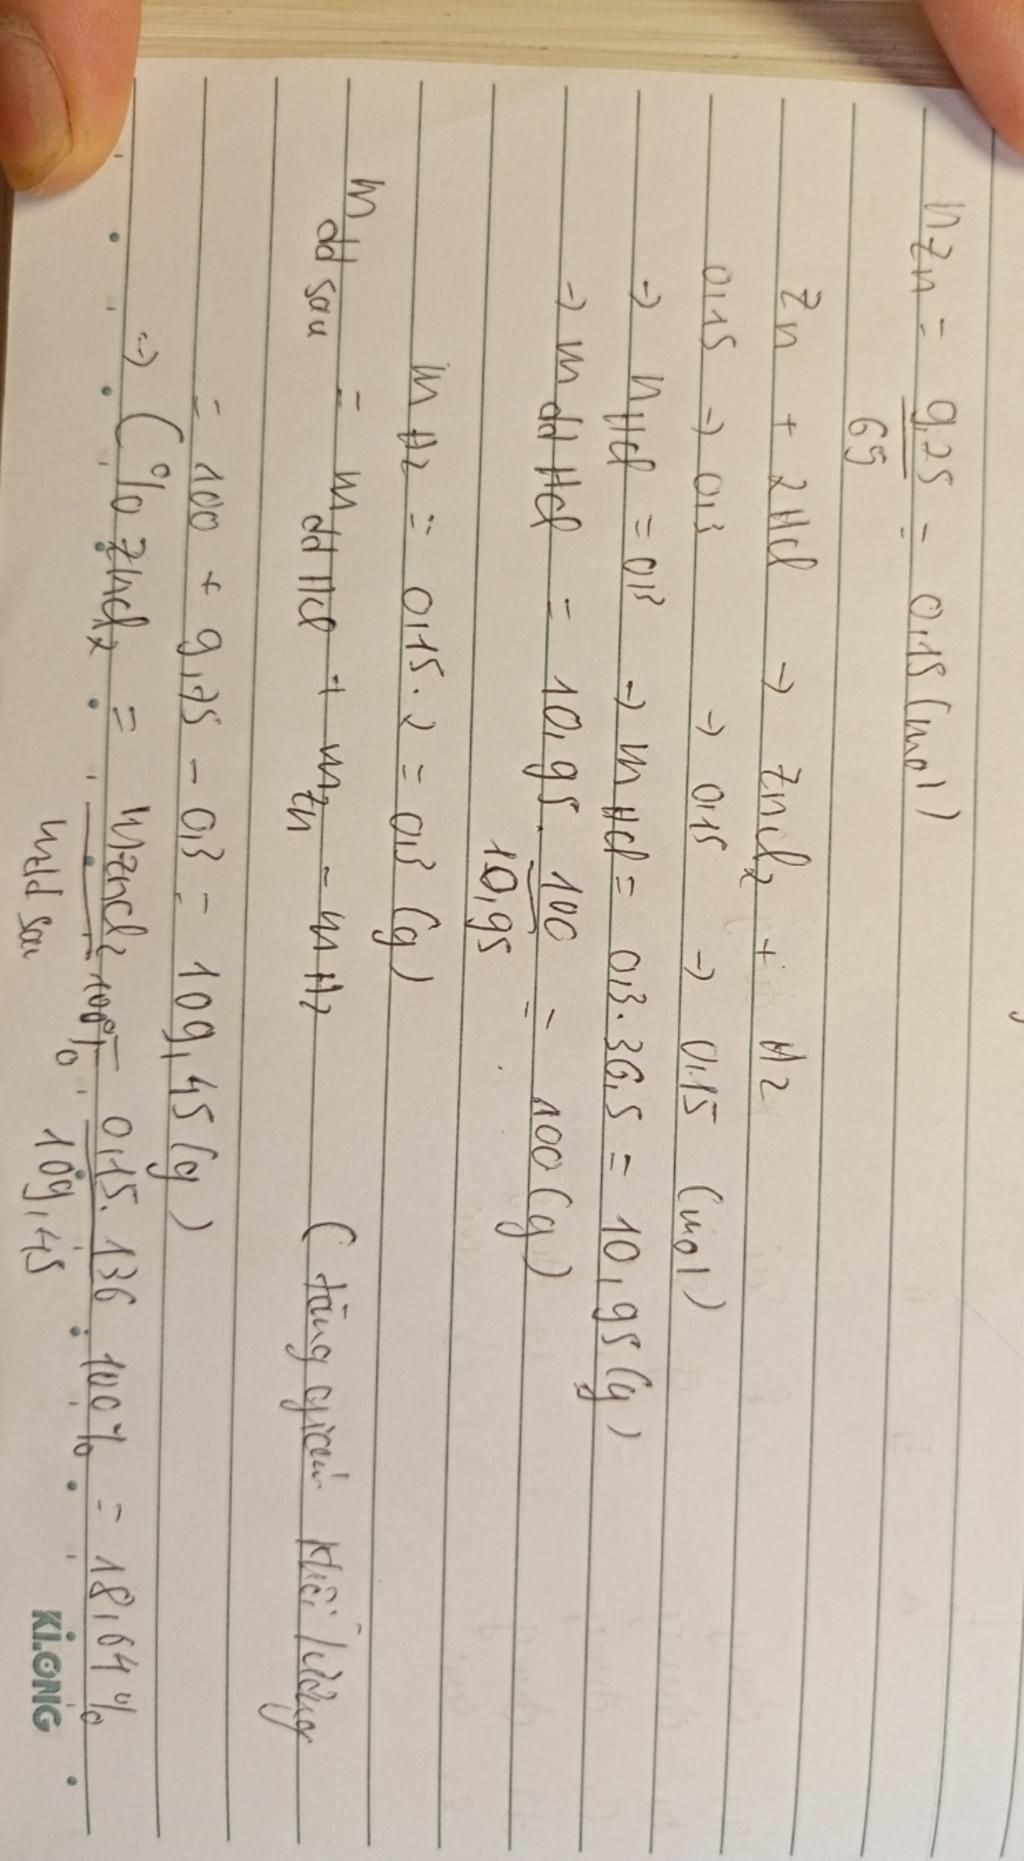 nZn = 9,75 = 0,15 (mol)
65
Zn + 2HCl → ZnCl2 + H2
0,15 → 0,3 → 0,15 → 0,15 (mol)
→ nHCl = 0,3 → mHCl = 0,3.36,5 = 10,95 (g)
→ mdd HCl = 10,95.100 = 100 (g)
10,95
mH2 = 0,15.2 = 0,3 (g)
mdd sau = mdd HCl + mZn - mH2 (tăng giảm khối lượng
= 100 + 9,75 - 0,3 = 109,45 (g)
→ C% ZnCl2 = mZnCl2 .100% = 0,15.136 .100% = 18,64%
mdd sau 109,45
KI.ONG